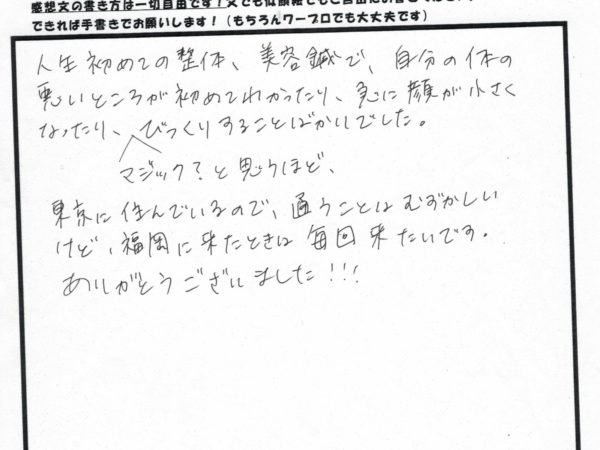 感想文の書き方は一切自由です！文でも似顔絵でもご自由にお書きください！
できれば手書きでお願いします！（もちろんワープロでも大丈夫です）
人生初めての整体、美容鍼で、自分の体の
悪いところが初めてわかったり、急に顔が小さく
なったり、びっくりすることばかりでした。
マジック？と思うほど、
東京に住んでいるので、通うことはむずかしい
けど、福岡に来たときは毎回来たいです。
ありがとうございました!!!